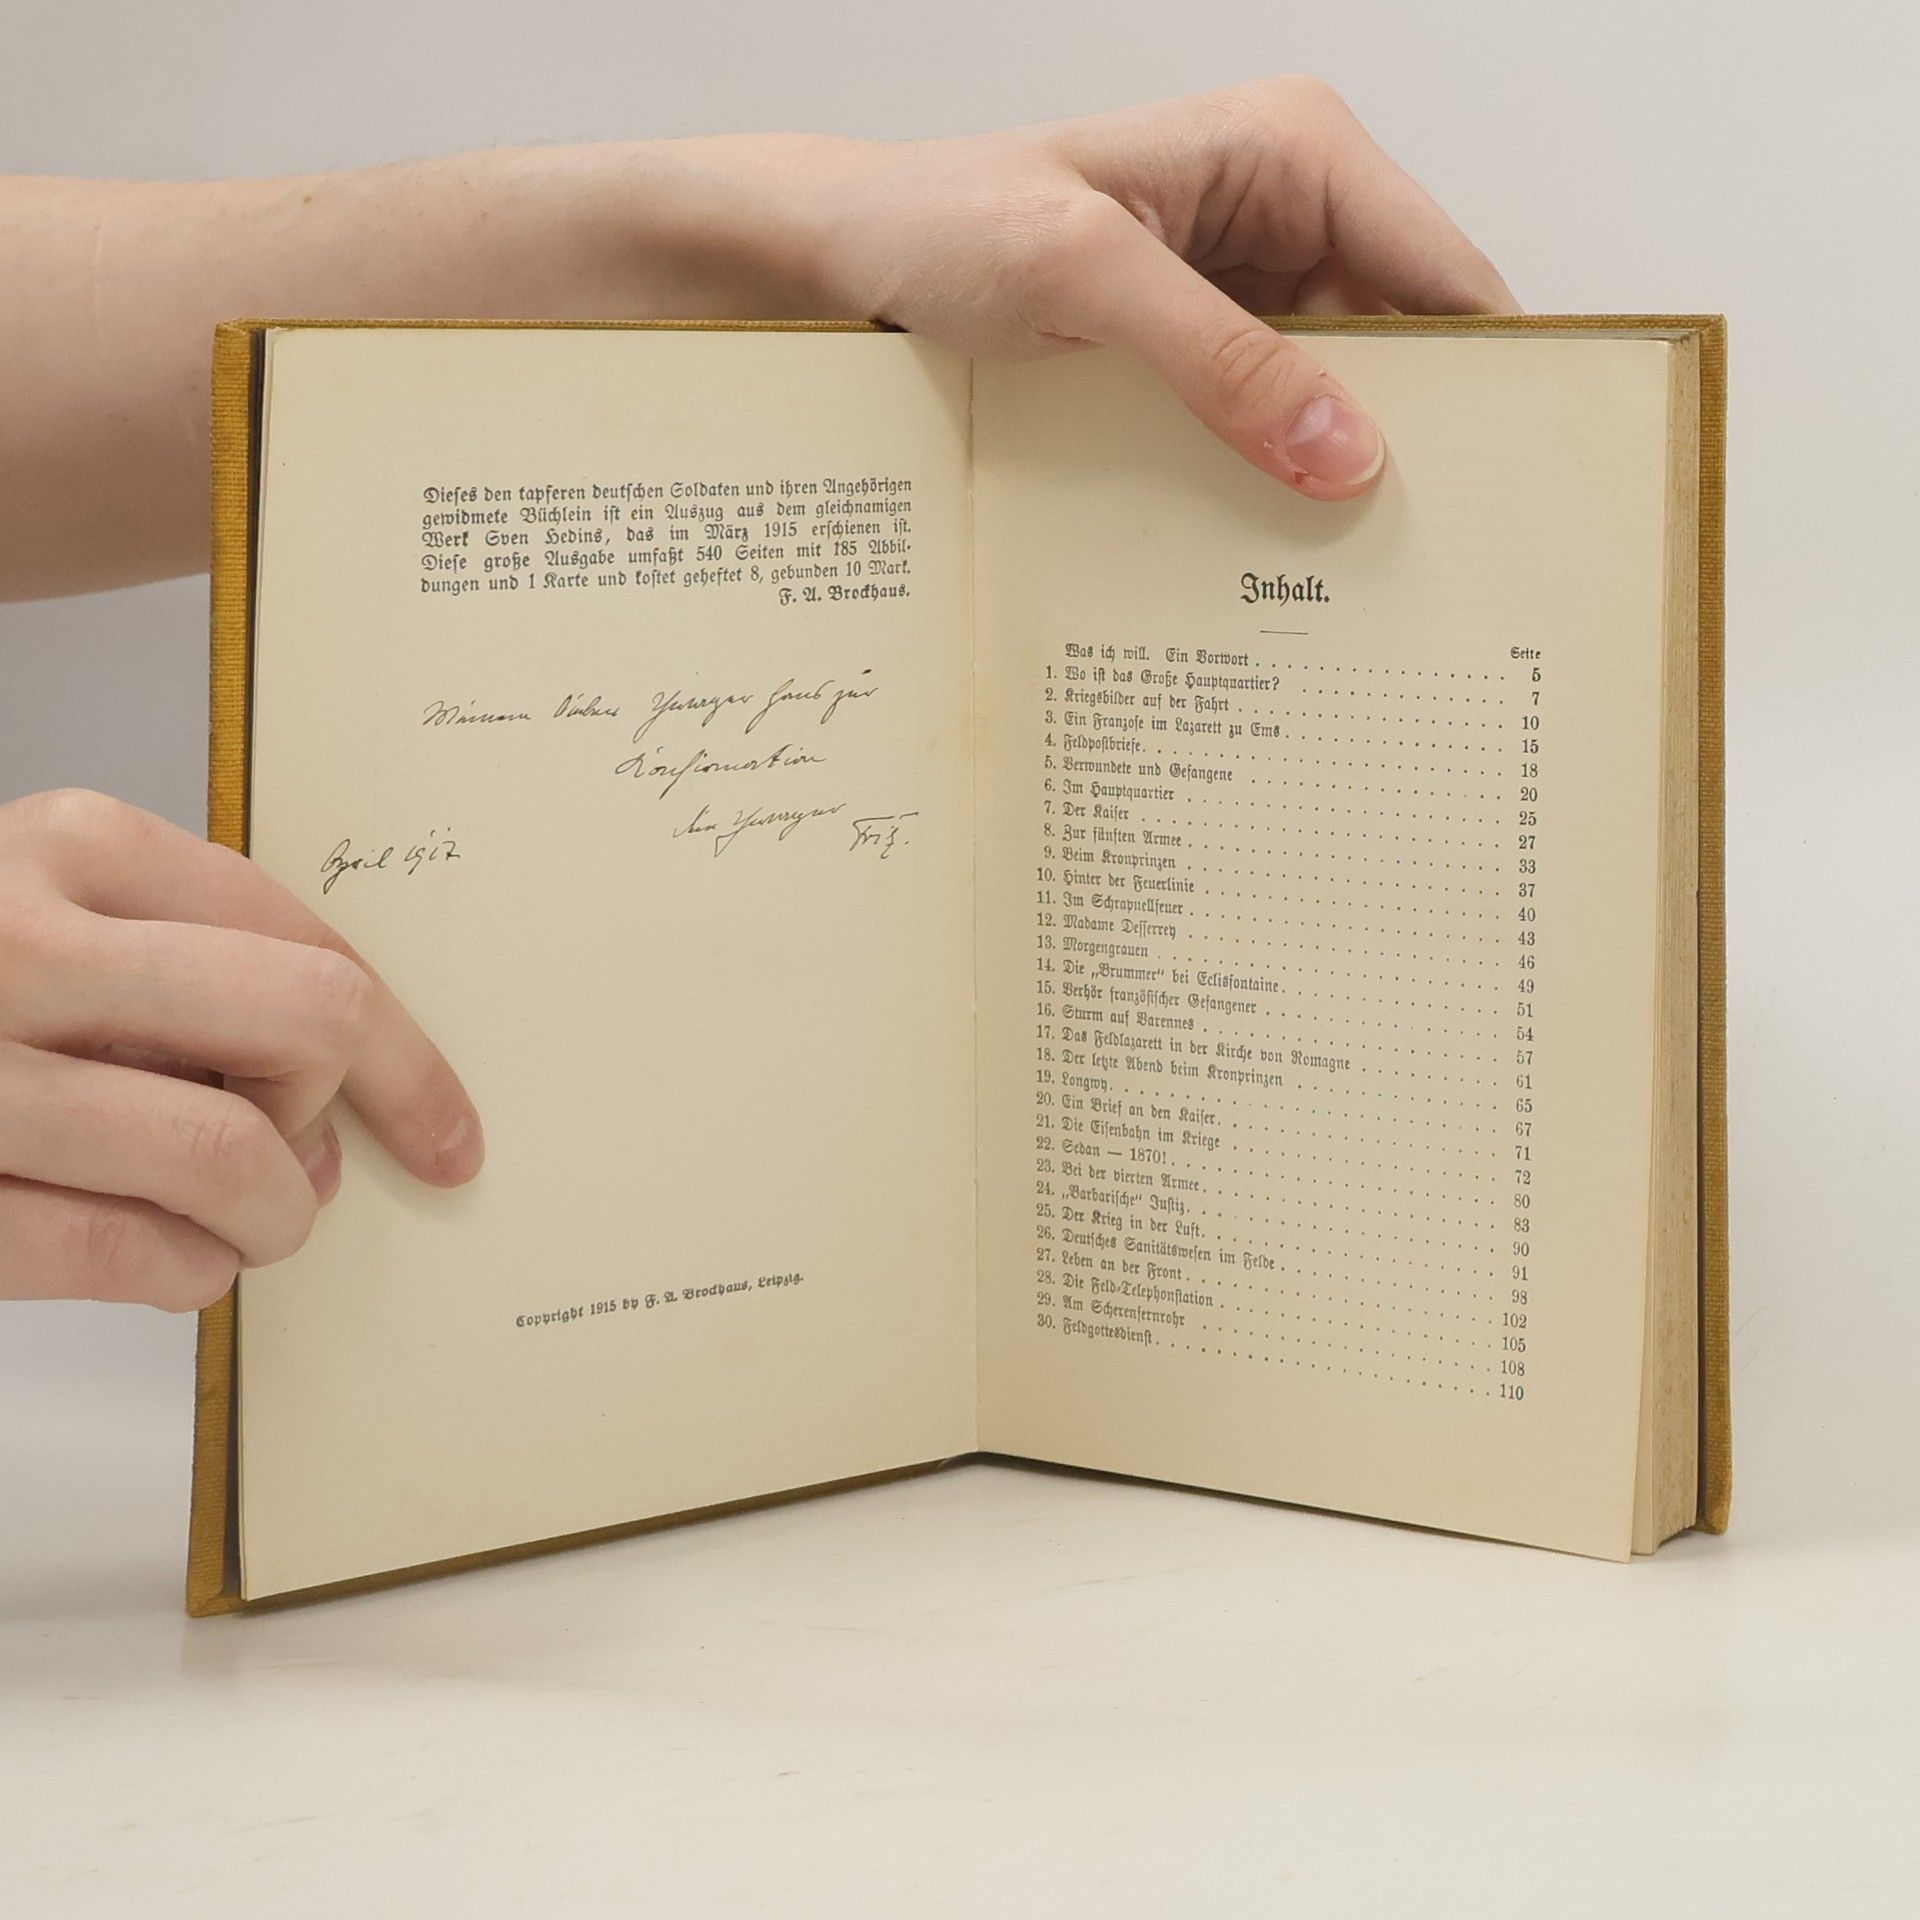 Dieses den tapferen deutschen Soldaten und ihren Angehörigen
gewidmete Büchlein ist ein Auszug aus dem gleichnamigen
Werk Sven Hedins, das im März 1915 erschienen ist.
Diese große Ausgabe umfaßt 540 Seiten mit 185 Abbil-
dungen und 1 Karte und kostet geheftet 8, gebunden 10 Mark.
F. A. Brockhaus.
Meinem lieben Schwager Hans zur
Konfirmation
Dein Schwager Fritz.
April 1917
Copyright 1915 by F. A. Brockhaus, Leipzig.
Inhalt.
Seite
Was ich will. Ein Vorwort . . . 5
1. Wo ist das Große Hauptquartier? . . . 7
2. Kriegsbilder auf der Fahrt . . . 10
3. Ein Franzose im Lazarett zu Ems . . . 15
4. Feldpostbriefe . . . 18
5. Verwundete und Gefangene . . . 20
6. Im Hauptquartier . . . 25
7. Der Kaiser . . . 27
8. Zur fünften Armee . . . 33
9. Beim Kronprinzen . . . 37
10. Hinter der Feuerlinie . . . 40
11. Im Schrapnellfeuer . . . 43
12. Madame Desserrey . . . 46
13. Morgengrauen . . . 49
14. Die „Brummer“ bei Eclisfontaine . . . 51
15. Verhör französischer Gefangener . . . 54
16. Sturm auf Varennes . . . 57
17. Das Feldlazarett in der Kirche von Romagne . . . 61
18. Der letzte Abend beim Kronprinzen . . . 65
19. Longwy . . . 67
20. Ein Brief an den Kaiser . . . 71
21. Die Eisenbahn im Kriege . . . 72
22. Sedan — 1870! . . . 80
23. Bei der vierten Armee . . . 83
24. „Barbarische“ Justiz . . . 90
25. Der Krieg in der Luft . . . 91
26. Deutsches Sanitätswesen im Felde . . . 98
27. Leben an der Front . . . 102
28. Die Feld-Telephonstation . . . 105
29. Am Scherenfernrohr . . . 108
30. Feldgottesdienst . . . 110